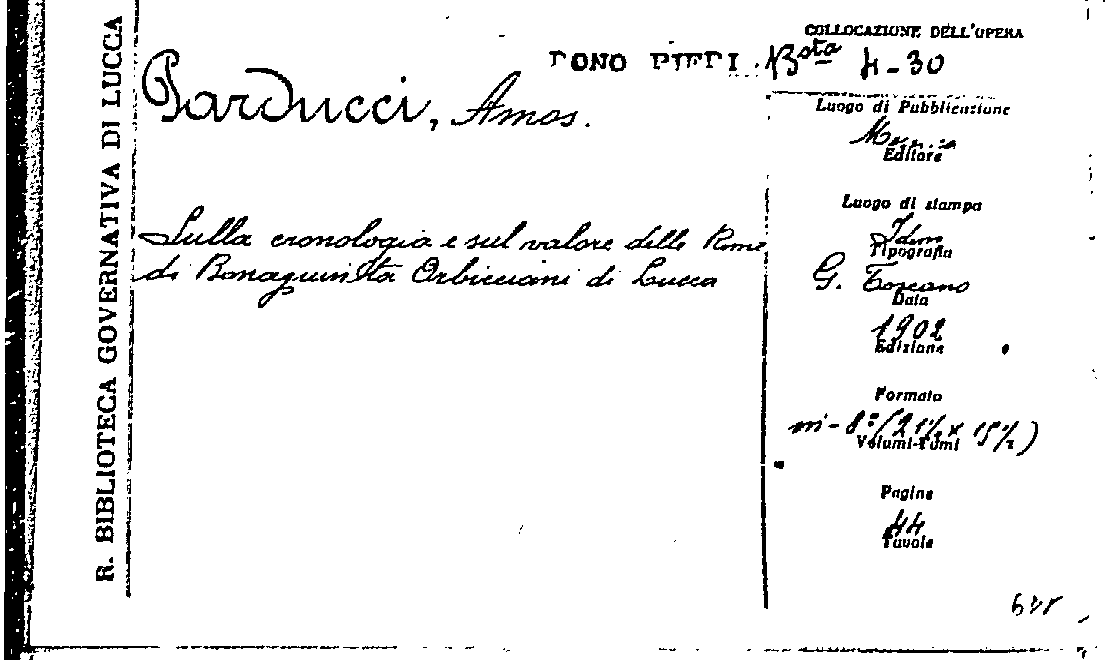 R. BIBLIOTECA GOVERNATIVA DI LUCCA
Parducci, Amos.
Sulla cronologia e sul valore delle Rime
di Bonagiunta Orbicciani di Lucca
DONO PIERI
COLLOCAZIONE DELL'OPERA
Bsta 4-30
Luogo di Pubblicazione
Messina
Editore
Luogo di stampa
Idem
Tipografia
G. Toscano
Data
1902
Edizione
Formato
in-8° (21½ x 15½)
Volumi-Tomi
Pagine
44
Tavole